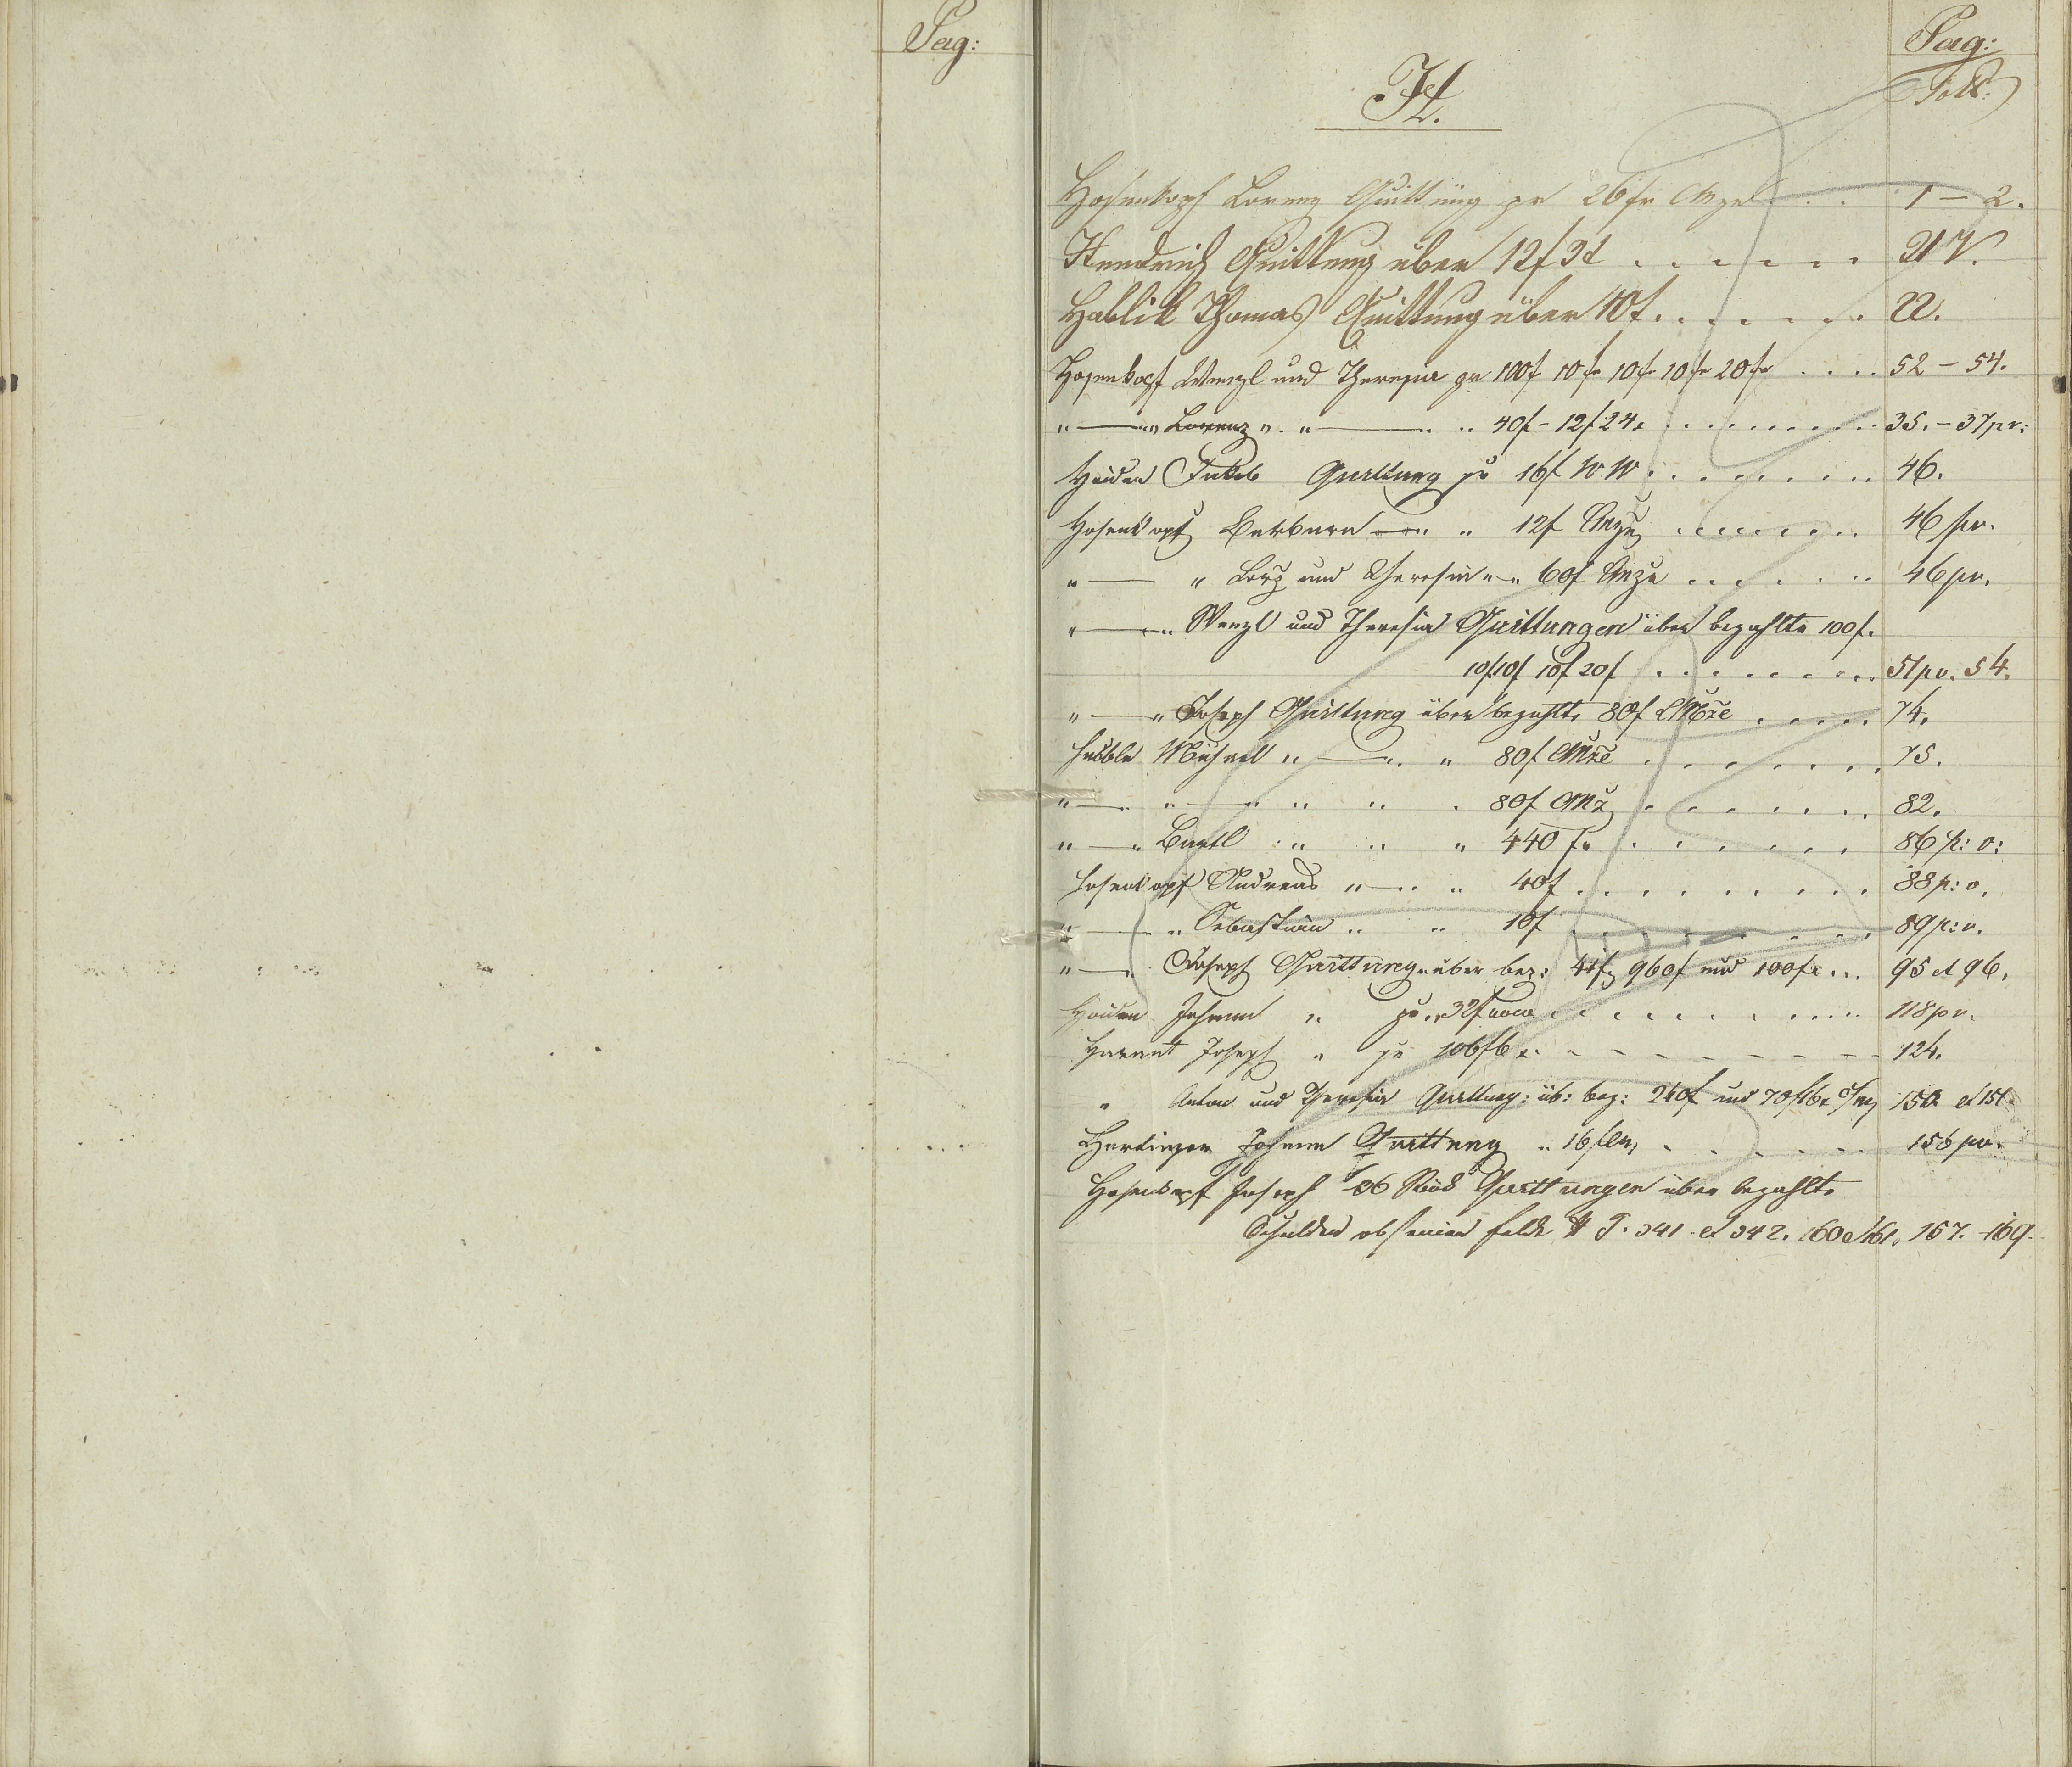 Pag:
Pag:
H.
Foll:
Hosenkopf Lorenz Quittung pr 26 fr CMze . . . 1 – 2.
Hendrich Quittung über 12f 3x . . . . . . 21 V.
Hablik Thomas Quittung über 10f. . . . . . . 22.
Hosenkopf Wenzl und Theresia pr 100f 10fr 10fr 10fr 20fr . . . . 52 – 54.
" — " Lorenz " . " — " " 40f – 12f 24x . . . . . . . . . . 35. – 37 pv:
Haiden Jakob Quittung pr 16f WW . . . . . . . . 46.
Hosenkopf Barbara — " " 12f CMze . . . . . . . 46 pv.
" — " Lorz und Theresia " – " 60f CMze . . . . . . 46 pv.
" — " Wenzl und Theresia Quittungen über bezahlte 100f.
10f 10f 10f 20f . . . . . . . . . 51 pv. 54.
" — " Joseph Quittung über bezahlte 80f CMze . . . . . 74.
Michael " — " " 80f CMze . . . . . . . 75.
" — " " — " " " " 80f CMz . . . . . . . 82.
" — " Bartl " " " 440 fr . . . . . . . 86 p: v:
Hosenkopf Andreas " — " " 40f . . . . . . . . . 88 p: v.
" — " Sebastian " " 10f . . . . . . . . 89 p: v.
" — " Joseph Quittunge über bez: 41f 960f und 100fr . . . 95 et 96.
Haiden Johann " pr " 32f ww . . . . . . . . . 118 pv.
Harant Joseph " pr 106f 6x. - - - - - - - - 124.
" Anton und Theresia Quittung: üb: bez: 240f und 70f 16x C/M 150. et 151.
Johann Quittung " 16f CM . . . . . . 156 pv.
Hosenkopf Joseph 36 Stück Quittungen über bezahlte
Schulden ob seinem Felde # T. 341. et 342. 160 et 161. 167. – 169.